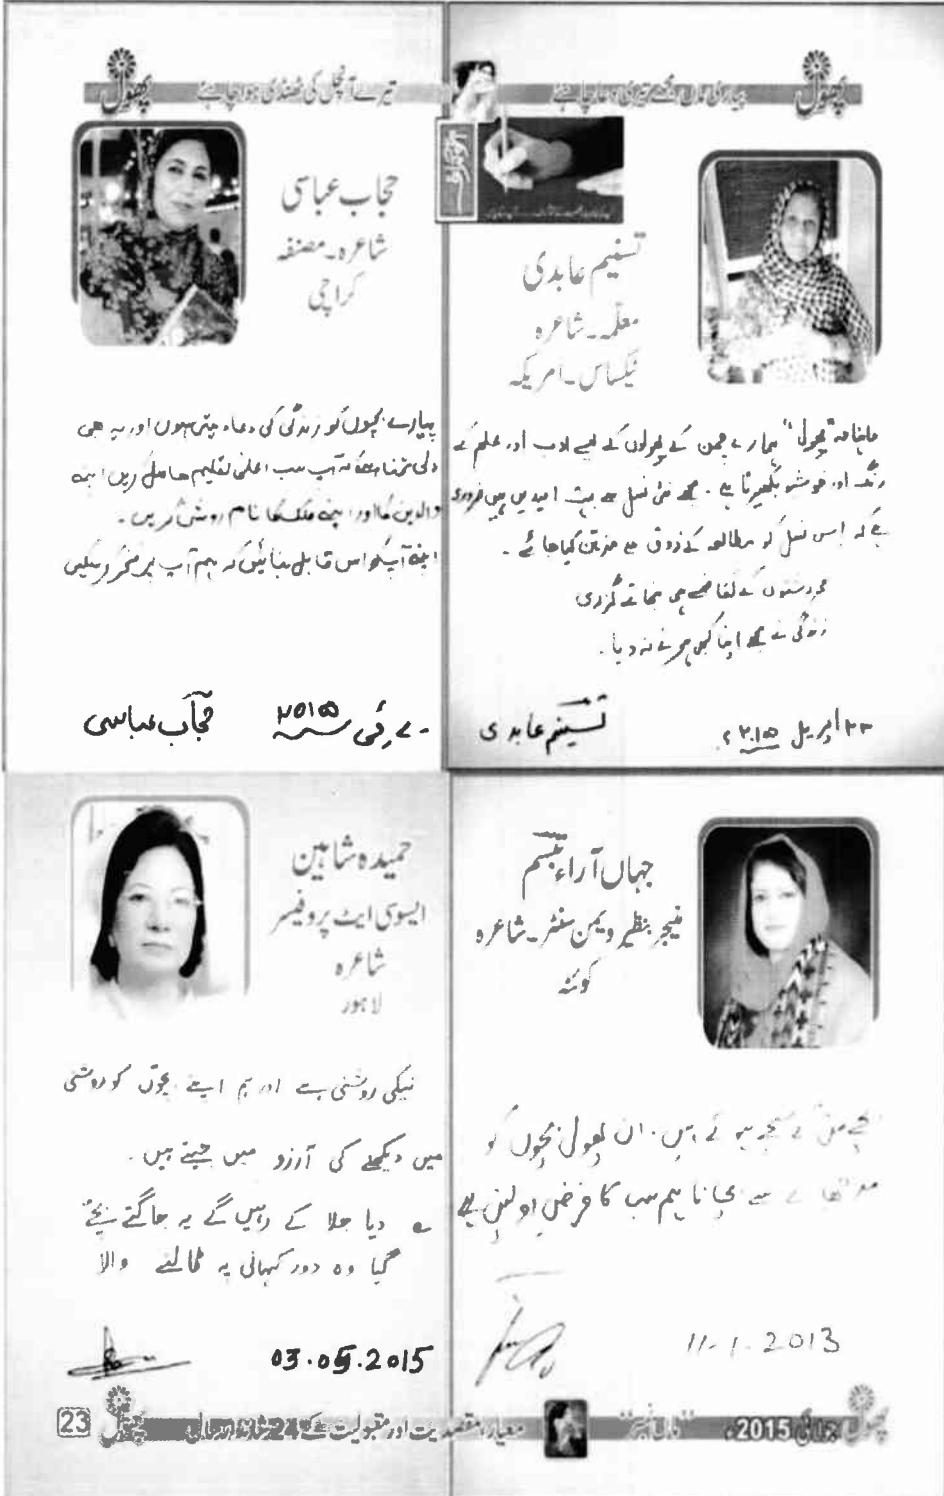 پیاری ماں مجھے تیری دعا چاہئے
پھول
تیرے آنچل کی ٹھنڈی ہوا چاہئے
پھول
آٹوگراف
تسنیم عابدی
معلّمہ۔شاعرہ
ٹیکساس۔امریکہ
ماہنامہ "پھول" ہمارے چمن کے پھولوں کے لیے ادب اور علم کے
رنگ اور خوشبو بکھیرتا ہے۔ مجھے نئی نسل سے بہت امیدیں ہیں ضروری
ہے کہ اس نسل کو مطالعہ کے ذوق سے مزین کیا جائے۔
عمر رشتوں کے تقاضے ہی نبھاتے گزری
زندگی نے مجھے اپنا کبھی ہونے نہ دیا۔
تسنیم عابدی
۲۳ اپریل ۲۰۱۵ء
حجاب عباسی
شاعرہ۔مصنفہ
کراچی
پیارے بچوں کو زندگی کی دعا دیتی ہوں اور یہ ھی
دلی تمنا ہے کہ آپ سب اعلٰی تعلیم حاصل کریں اپنے
والدین کا اور اپنے ملک کا نام روشن کریں۔
اپنے آپکو اس قابل بنائیں کہ ہم آپ پر فخر کر سکیں
حجاب عباسی
۷ مئی ۲۰۱۵
جہاں آراء تبسم
منیجر بنظیر ویمن سنٹر۔شاعرہ
کوئٹہ
ہیں۔ ان پھول بچوں کو
سے بچانا ہم سب کا فرض اولین ہے
11-1-2013
حمیدہ شاہین
ایسوسی ایٹ پروفیسر
شاعرہ
لاہور
نیکی روشنی ہے اور ہم اپنے بچوں کو روشنی
میں دیکھنے کی آرزو میں جیتے ہیں۔
دیا جلا کے رہیں گے یہ جاگتے بچے
گیا وہ دور کہانی پہ ٹالنے والا
03.05.2015
پھول جولائی 2015ء
"ماں نمبر"
معیار، مقصدیت اور مقبولیت کے 24 شاندار سال
پھول
23